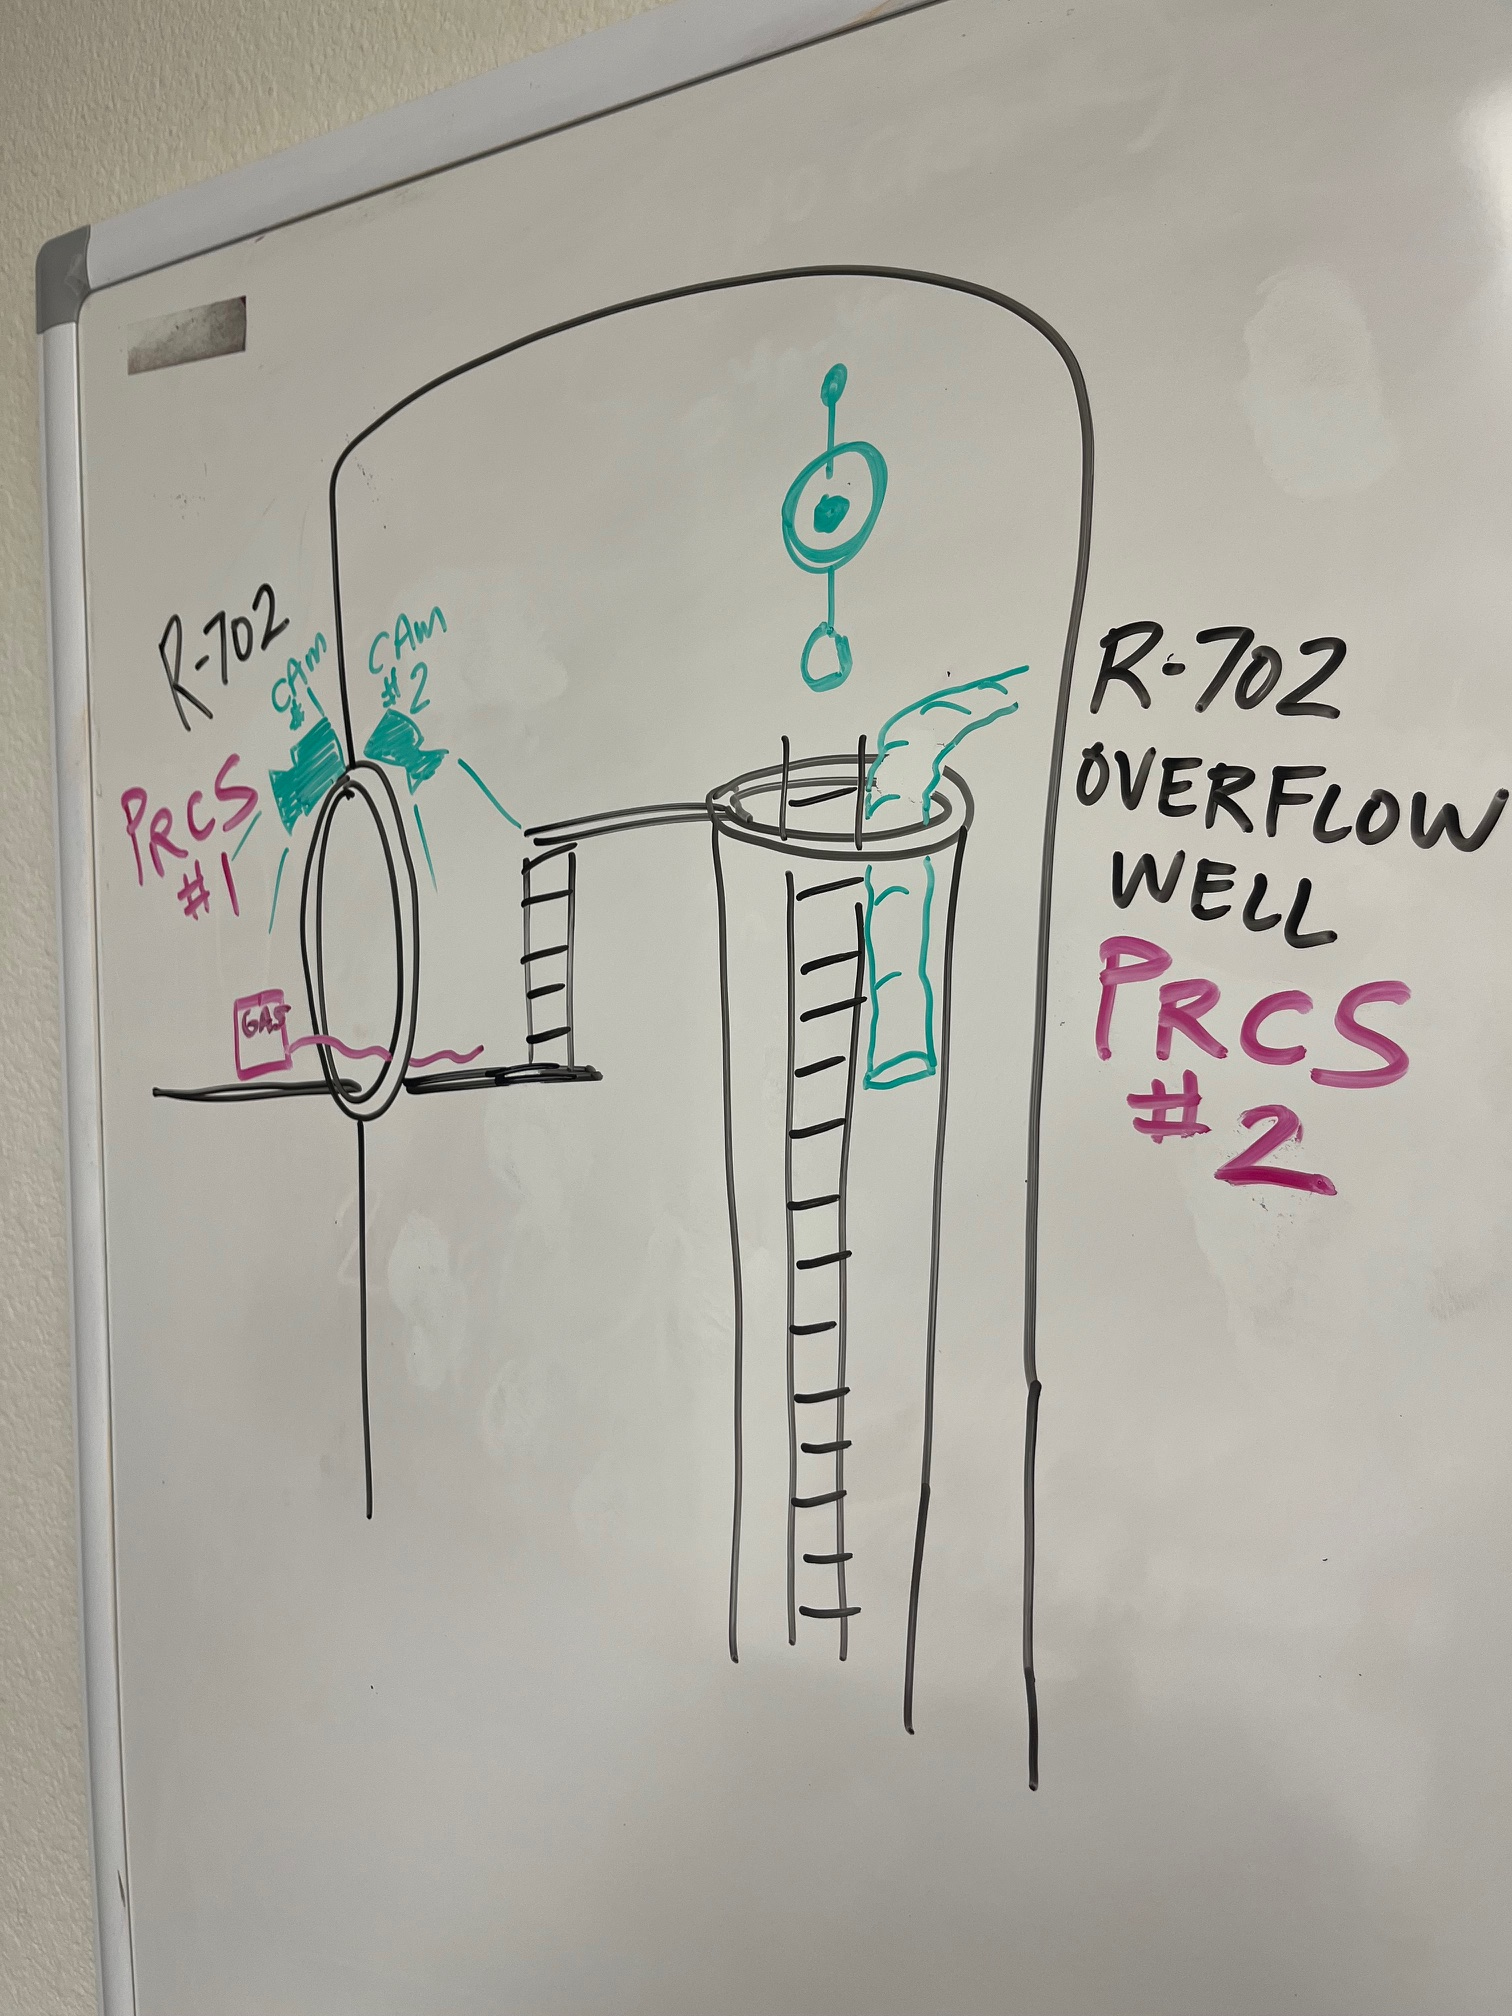 R-702
CAM
#1
CAM
#2
PRCS
#1
GAS
R-702
OVERFLOW
WELL
PRCS
#2